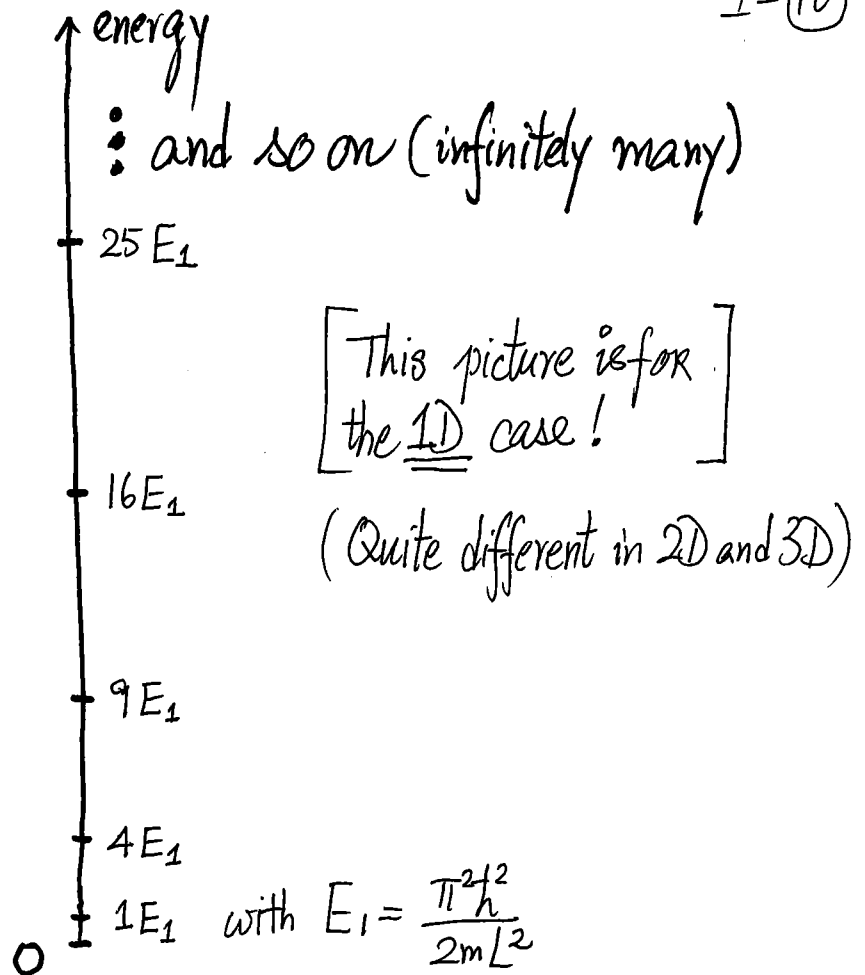 energy
⋮ and so on (infinitely many)
25 E₁
[This picture is for
the 1D case!]
16E₁
(Quite different in 2D and 3D)
9E₁
4E₁
1E₁ with E₁ = π²ħ² / 2mL²
0